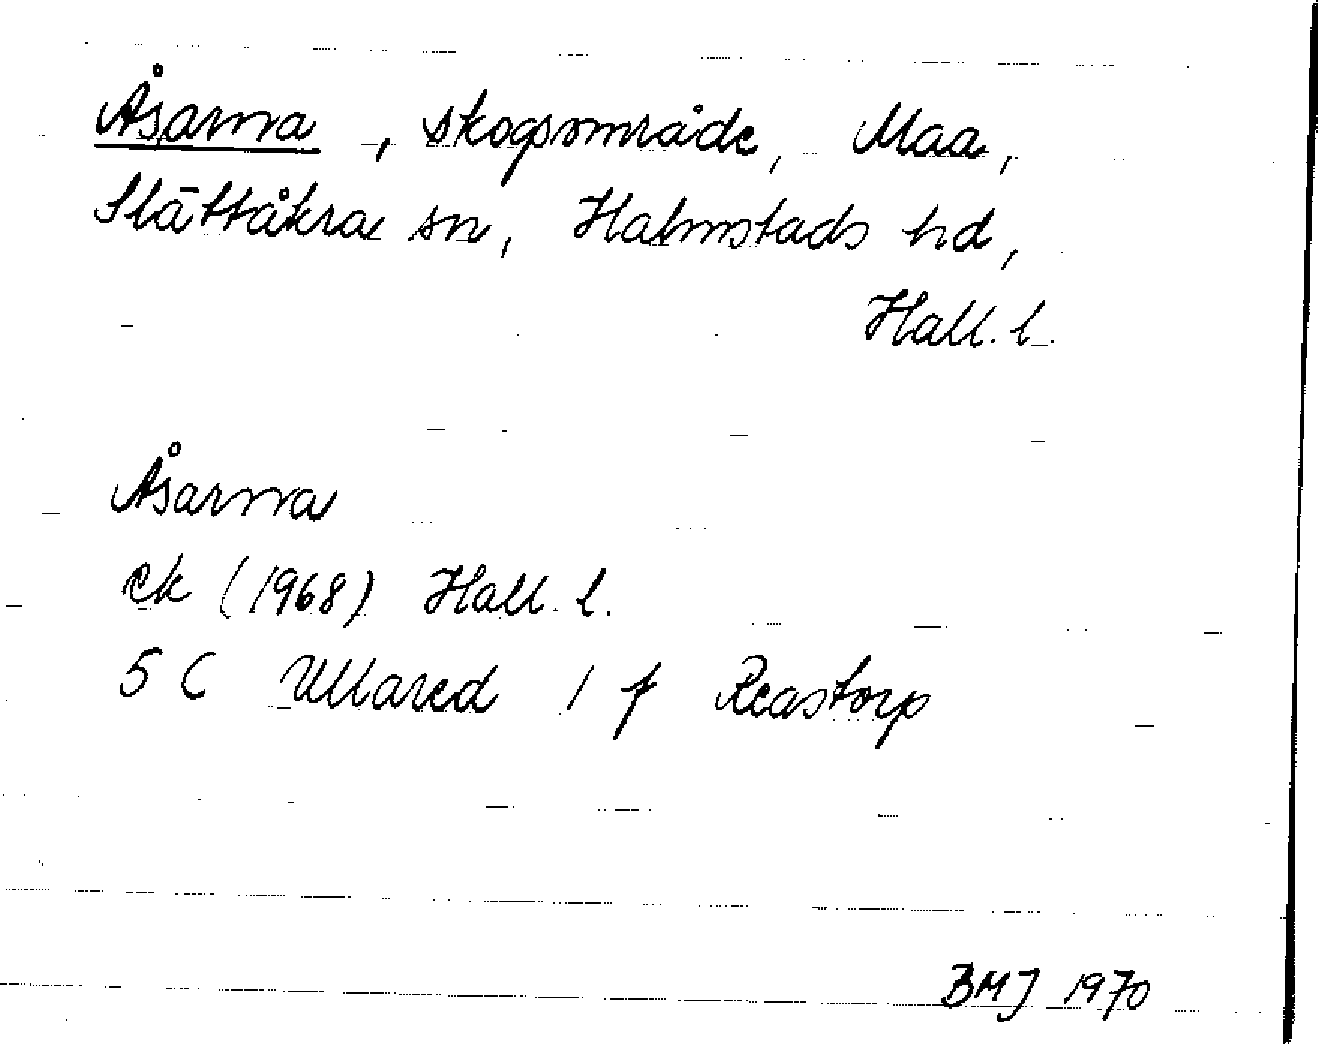 Åsarna, skogsområde, Maa,
Slättåkra sn, Halmstads hd,
Hall. l.
Åsarna
ek (1968) Hall. l.
5 C Ullared 1 f Reastorp
BMJ 1970